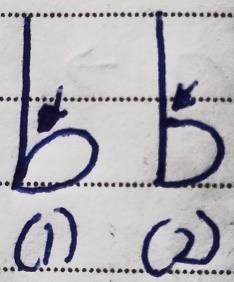 b b
(1) (2)